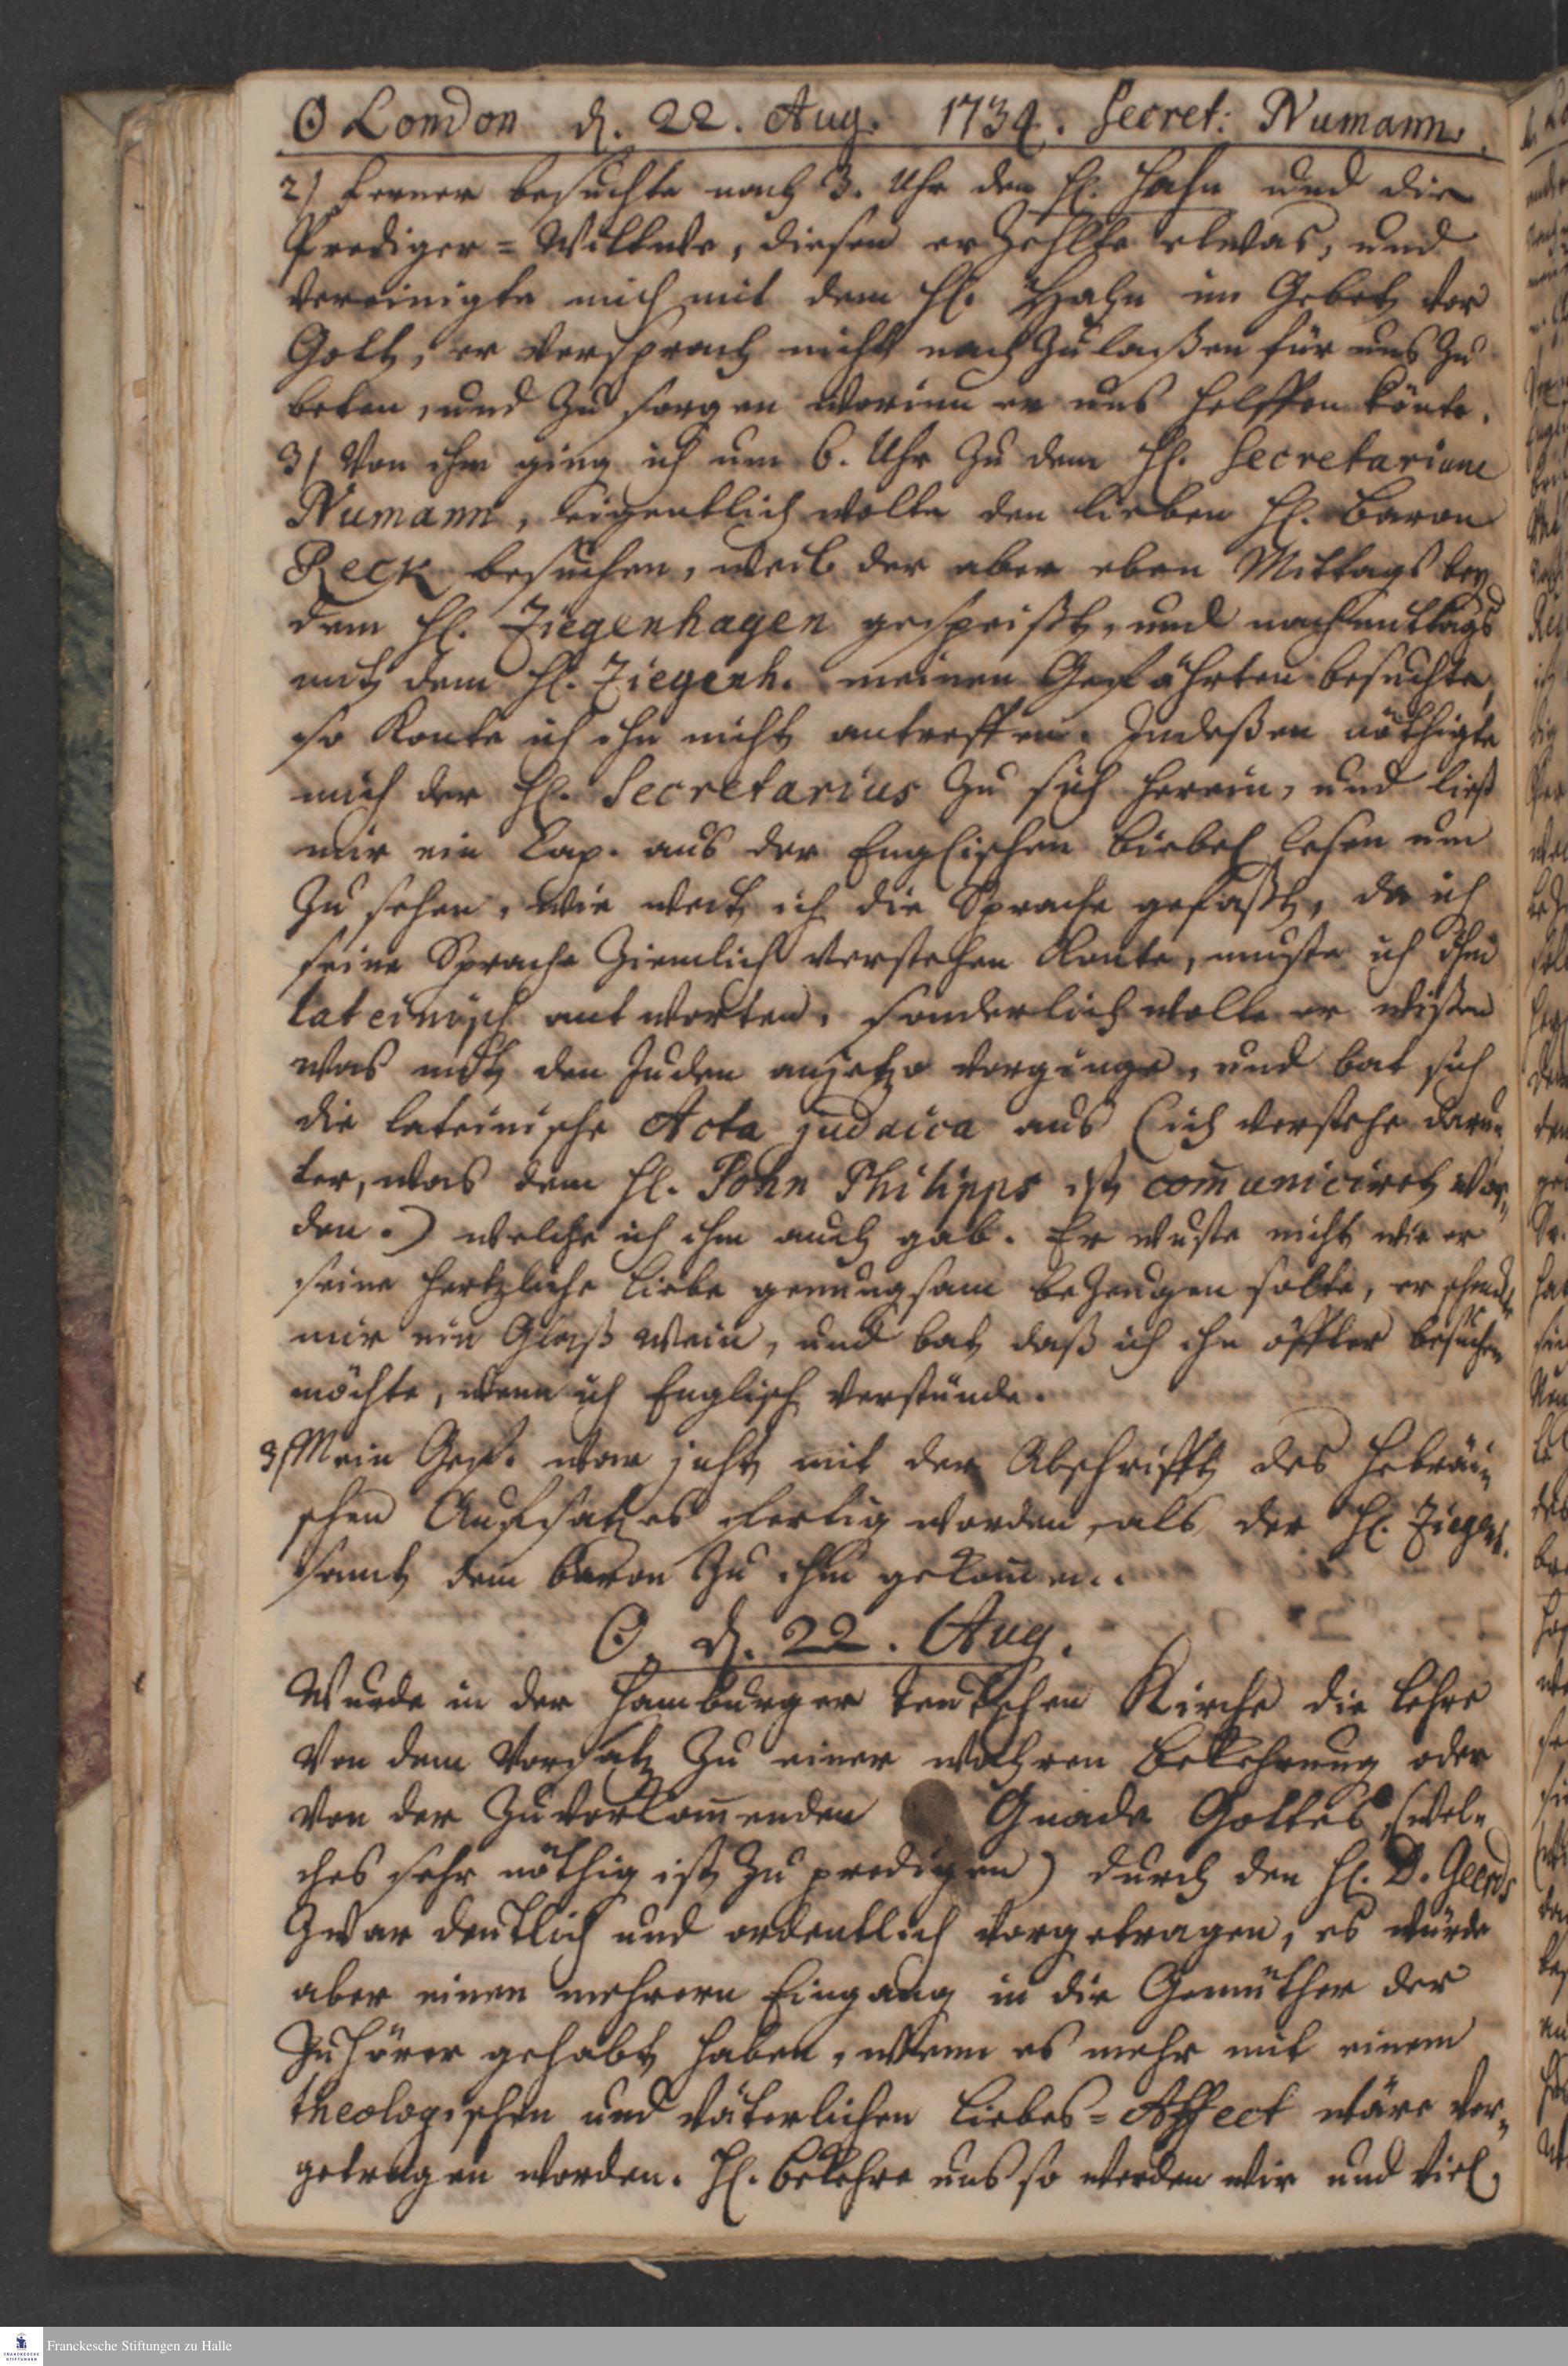 ☉ London d. 22. Aug. 1734. Secret: Numann.
2/ Ferner besuchte nach 3. Uhr den H. Hahn und die
Prediger=Wittwe, diesen erzehlte etwas, und
vereinigte mich mit dem H. Hahn im Gebet vor
Gott, er versprach nicht nachzulaßen für uns zu
beten, und zu sorgen worinn er uns helffen könte.
3/ Von ihm ging ich um 6. Uhr zu dem H. Secretarium
Numann, eigentlich wolte den lieben H. Baron
Reck besuchen, weil der aber eben Mittags bey
dem H. Ziegenhagen gespeißt, und nachmittags
mit dem H. Ziegenh. meinen Gefährten besuchte,
so konte ich ihn nicht antreffen. Indeßen nöthigte
mich der H. Secretarius zu sich herein, und ließ
mir ein Cap. aus der Englischen Biebel lesen um
zu sehen, wie weit ich die Sprache gefaßt, da ich
seine Sprache ziemlich verstehen konte, muste ich ihm
lateinisch antworten. sonderlich wolte er wißen
was mit den Juden anjetzo vorginge, und bat sich
die lateinische Acta judaica aus (ich verstehe darun-
ter, was dem H. John Philipps ist com̄uniciret wor-
den.) welche ich ihm auch gab. Er wuste nicht wie er
seine hertzliche Liebe genungsam bezeugen solte, er schenckte
mir ein Glaß Wein, und bat daß ich ihn öffter besuchen
möchte, wenn ich Englisch verstünde.
3/ Mein Gef. war jetzt mit der Abschrifft des Hebräi-
schen Aufsatzes fertig worden, als der H. Ziegenh.
samt dem Baron zu ihm gekom̄en.
☉ d. 22. Aug.
Wurde in der Hamburger teutschen Kirche die Lehre
von dem Vorsatz zu einer wahren Bekehrung oder
von der zuvorkom̄enden Gnade Gottes, (wel-
ches sehr nöthig ist zu predigen) durch den H. D. Geerds
zwar deutlich und ordentlich vorgetragen, es würde
aber einen mehrern Eingang in die Gemüther der
Zuhörer gehabt haben, wenn es mehr mit einem
theologischen und väterlichen Liebes=Affect wäre vor-
getragen worden. H. bekehre uns so werden wir und viel
Franckesche Stiftungen zu Halle